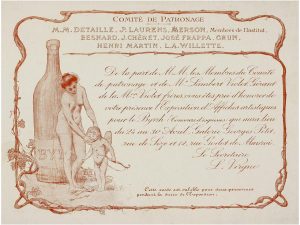 COMITÉ DE PATRONAGE
M.M. DETAILLE, J.P. LAURENS, MERSON, Membres de l'Institut,
BESNARD, J. CHÉRET, JOSÉ FRAPPA, GRÜN,
HENRI MARTIN, L.A. WILLETTE.
De la part de M.M. les Membres du Comité
de patronage et de Mr Lambert Violet Gérant
de la Mon Violet frères, vous êtes prié d'honorer de
votre présence l'Exposition d'Affiches artistiques
pour le Byrrh qui aura lieu
du 24 au 30 Avril, Galerie Georges Petit,
rue de Sèze et 12, rue Godot de Mauroi.
Le Secrétaire
L. Vergne
BYRRH
Cette carte est valable pour deux personnes
pendant la durée de l'Exposition.